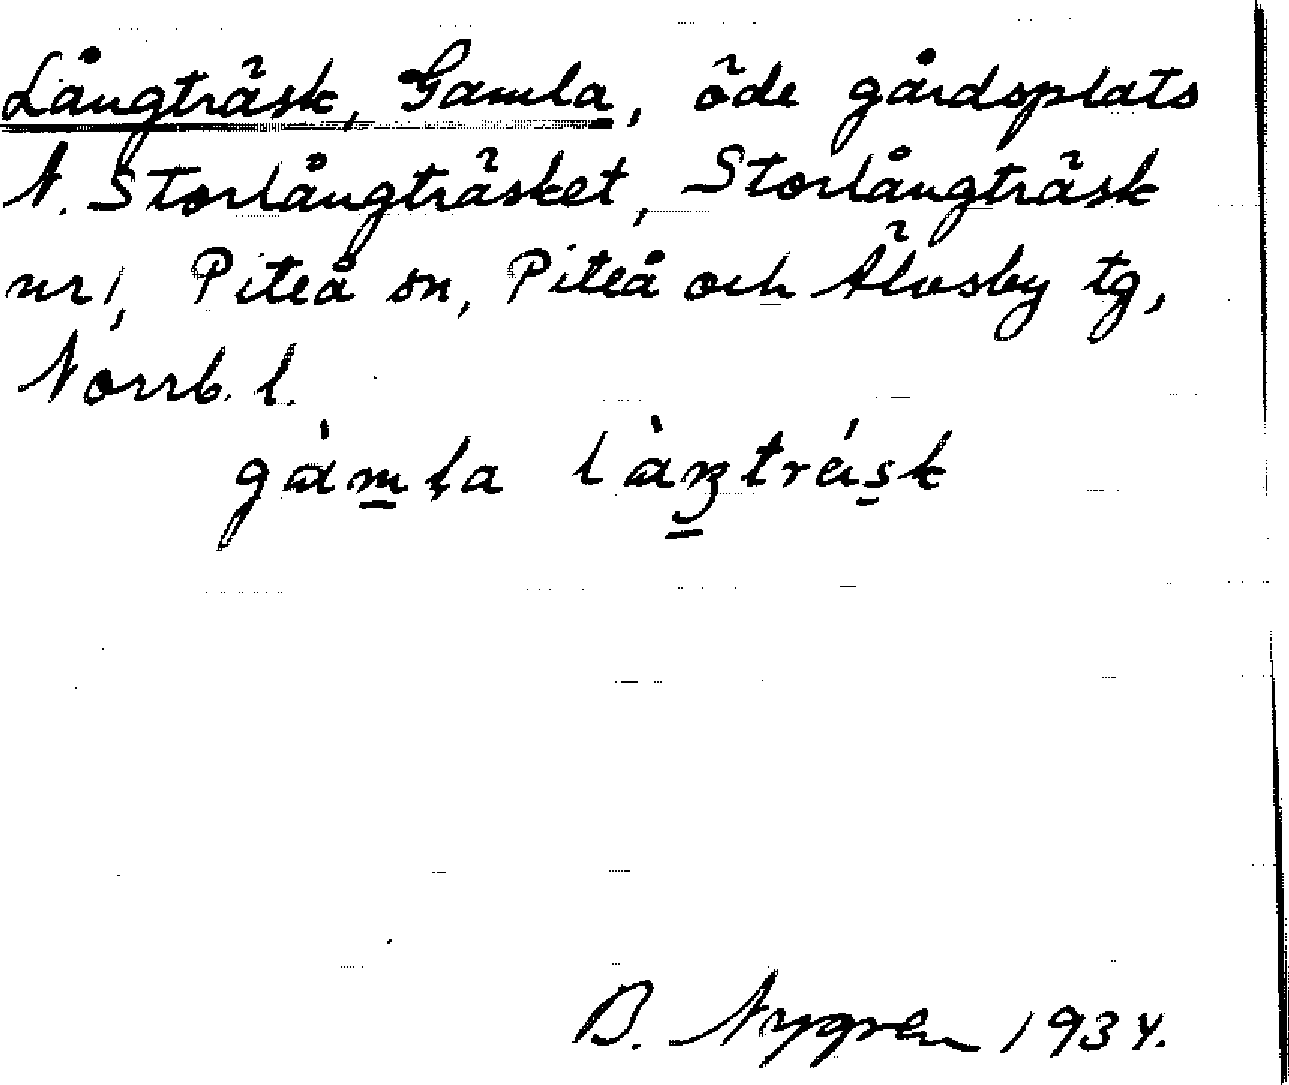 Långträsk, Gamla, öde gårdsplats
N. Storlångträsket, Storlångträsk
nr 1, Piteå sn, Piteå och Älvsby tg,
Norrb. l.
gàm̲l̩a làŋ̲trás̲k
B. Nygren 1934.